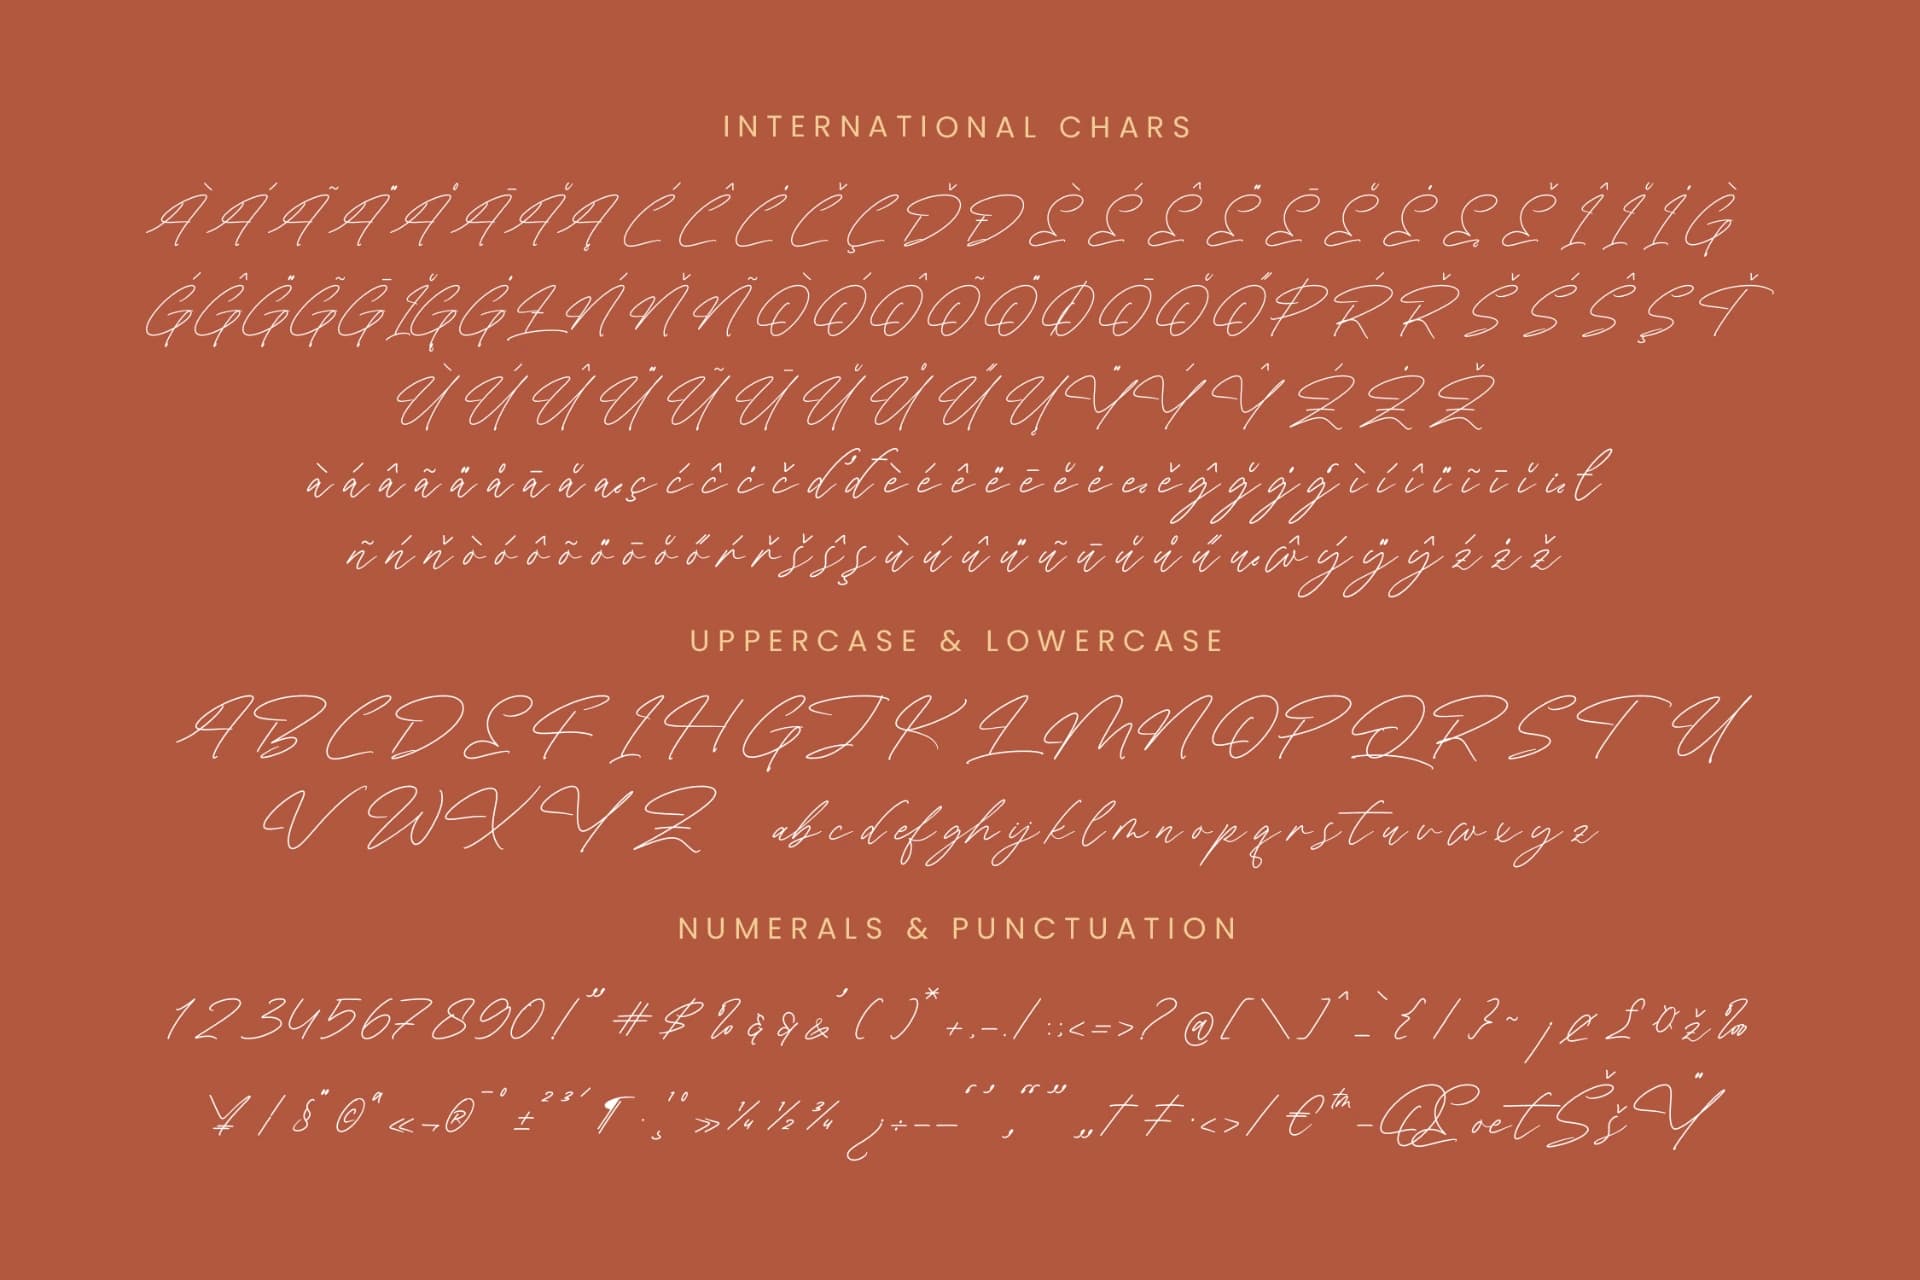 INTERNATIONAL CHARS
ÀÁÃÄÅĀĂĄĆĈĊČÇĎĐÈÉÊËĒĔĖĘĚÎĬİG̀
ǴĜG̈G̃ḠĬĢGŁŃŇÑÒÓÔÕÖØŌŎŐÞŔŘŠŚŜŞŤ
ÙÚÛÜŨŪŬŮŰŲŸÝŶŹŻŽ
àáâãäåāăąçćĉċčďđèéêëēĕėęěĝğġģìíîïĩīĭįł
ñńňòóôõöōŏőŕřšŝşùúûüũūŭůűųŵýÿŷźżž
UPPERCASE & LOWERCASE
ABCDEFIHGJKLMNOPQRSTU
VWXYZ abcdefghijklmnopqrstuvwxyz
NUMERALS & PUNCTUATION
1234567890!"#$%&'()*+,-./:;<=>?@[\]^_`{|}~¡¢£¤ž‰
¥|§¨©ª«¬®¯°±²³´¶·¸¹º»¼½¾¿÷–—‘’‚“”„†‡·‹›/€™−ŒœtŠšŸ